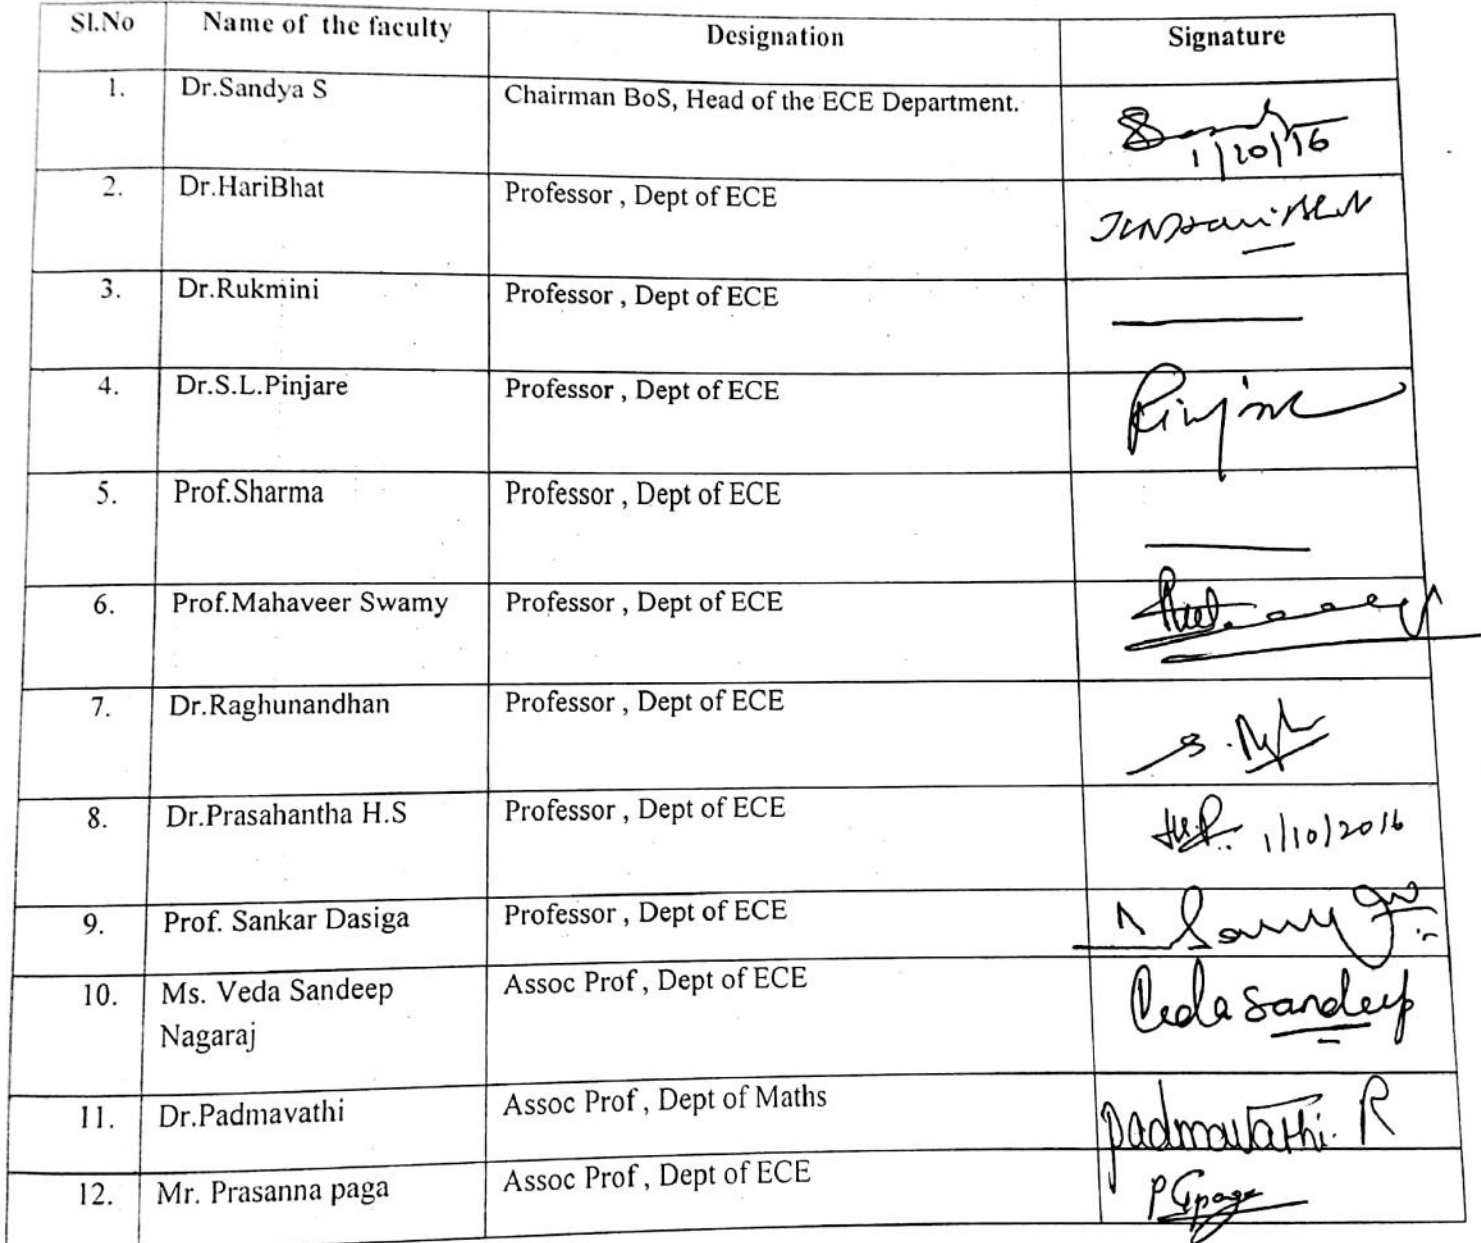 Sl.No Name of the faculty Designation Signature
1. Dr.Sandya S Chairman BoS, Head of the ECE Department.
1/10/16
2. Dr.HariBhat Professor , Dept of ECE
3. Dr.Rukmini Professor , Dept of ECE
4. Dr.S.L.Pinjare Professor , Dept of ECE
5. Prof.Sharma Professor , Dept of ECE
6. Prof.Mahaveer Swamy Professor , Dept of ECE
7. Dr.Raghunandhan Professor , Dept of ECE
8. Dr.Prasahantha H.S Professor , Dept of ECE 1/10/2016
9. Prof. Sankar Dasiga Professor , Dept of ECE
10. Ms. Veda Sandeep Assoc Prof , Dept of ECE Veda Sandeep
Nagaraj
11. Dr.Padmavathi Assoc Prof , Dept of Maths Padmavathi. R
12. Mr. Prasanna paga Assoc Prof , Dept of ECE